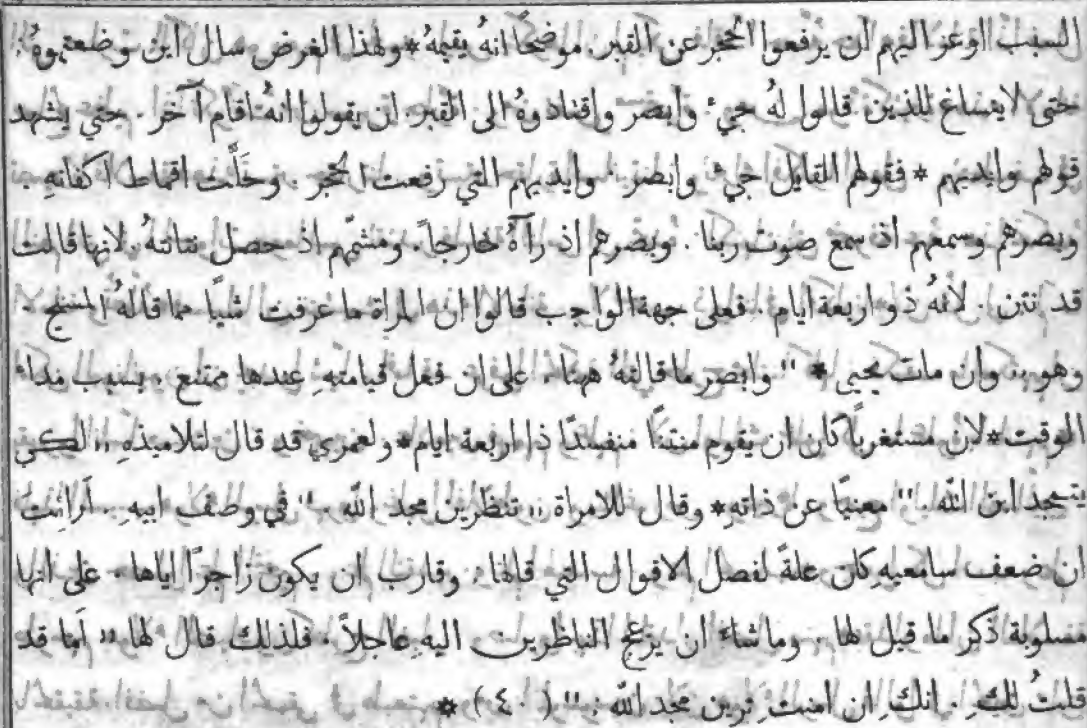 السبب اوعز اليهم ان يرفعوا الحجر عن القبر. موضحًا انهُ يقيمهُ * ولهذا الغرض سال اين وضعتموهُ.
حتى لا ينساغ للذين قالوا لهُ جيء وابصر واقتادوهُ الى القبر. ان يقولوا انهُ اقام آخر. حتى يشهد
قولهم وايديهم * فقولهم القايل جيء وابصر. وايديهم التي رفعت الحجر. وحَلَّت اقماط اكفانهِ.
وبصرهم وسمعهم اذ سمع صوت ربنا. وبصرهم اذ رآهُ خارجاً. ومشمّهم اذ حصل نتانتهُ. لانها قالت
قد انتن. لانهُ ذو اربعة ايام. فعلى جهة الواجب قالوا ان المراة ما عرفت شيًا مما قالهُ المسيح.
وهو ،، وان مات يحيى * ،، وابصر ما قالتهُ ههنا. على ان فعل قيامتهِ عندها ممتنع. بسبب مداء
الوقت * لان مستغرباً كان ان يقوم منتنًا منفسدًا ذا اربعة ايام * ولعمري قد قال لتلاميذهِ ،، لكي
يتمجد ابن الله ،، معنيًا عن ذاته * وقال للامراة ،، تنظرين مجد الله. ،، في وصف ابيهِ. اَرائيت
ان ضعف سامعيهِ كان علةً لفصل الاقوال التي قالها. وقارب ان يكون زاجرًا اياها. على انها
مسلوبة ذكر ما قيل لها. وما شاء ان يزعج الناظرين اليه عاجلاً. فلذلك قال لها ،، اَما قد
قلتُ لكِ. انكِ ان امنتِ ترين مجد الله. ،، (٤٠) *